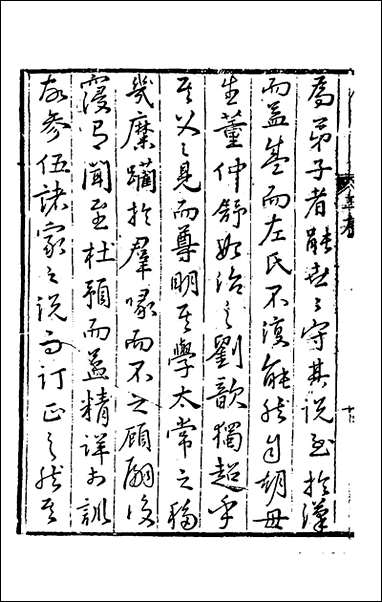 為弟子者能世〻守其說至於漢
而益盛而左氏不復能然自胡母
生董仲舒始治之劉歆獨超乎
其父之見而尊明其學太常之移
幾糜躪於羣喙而不之顧嗣後
寖有聞至杜預而益精詳於訓
故參伍諸家之說而訂正之然其